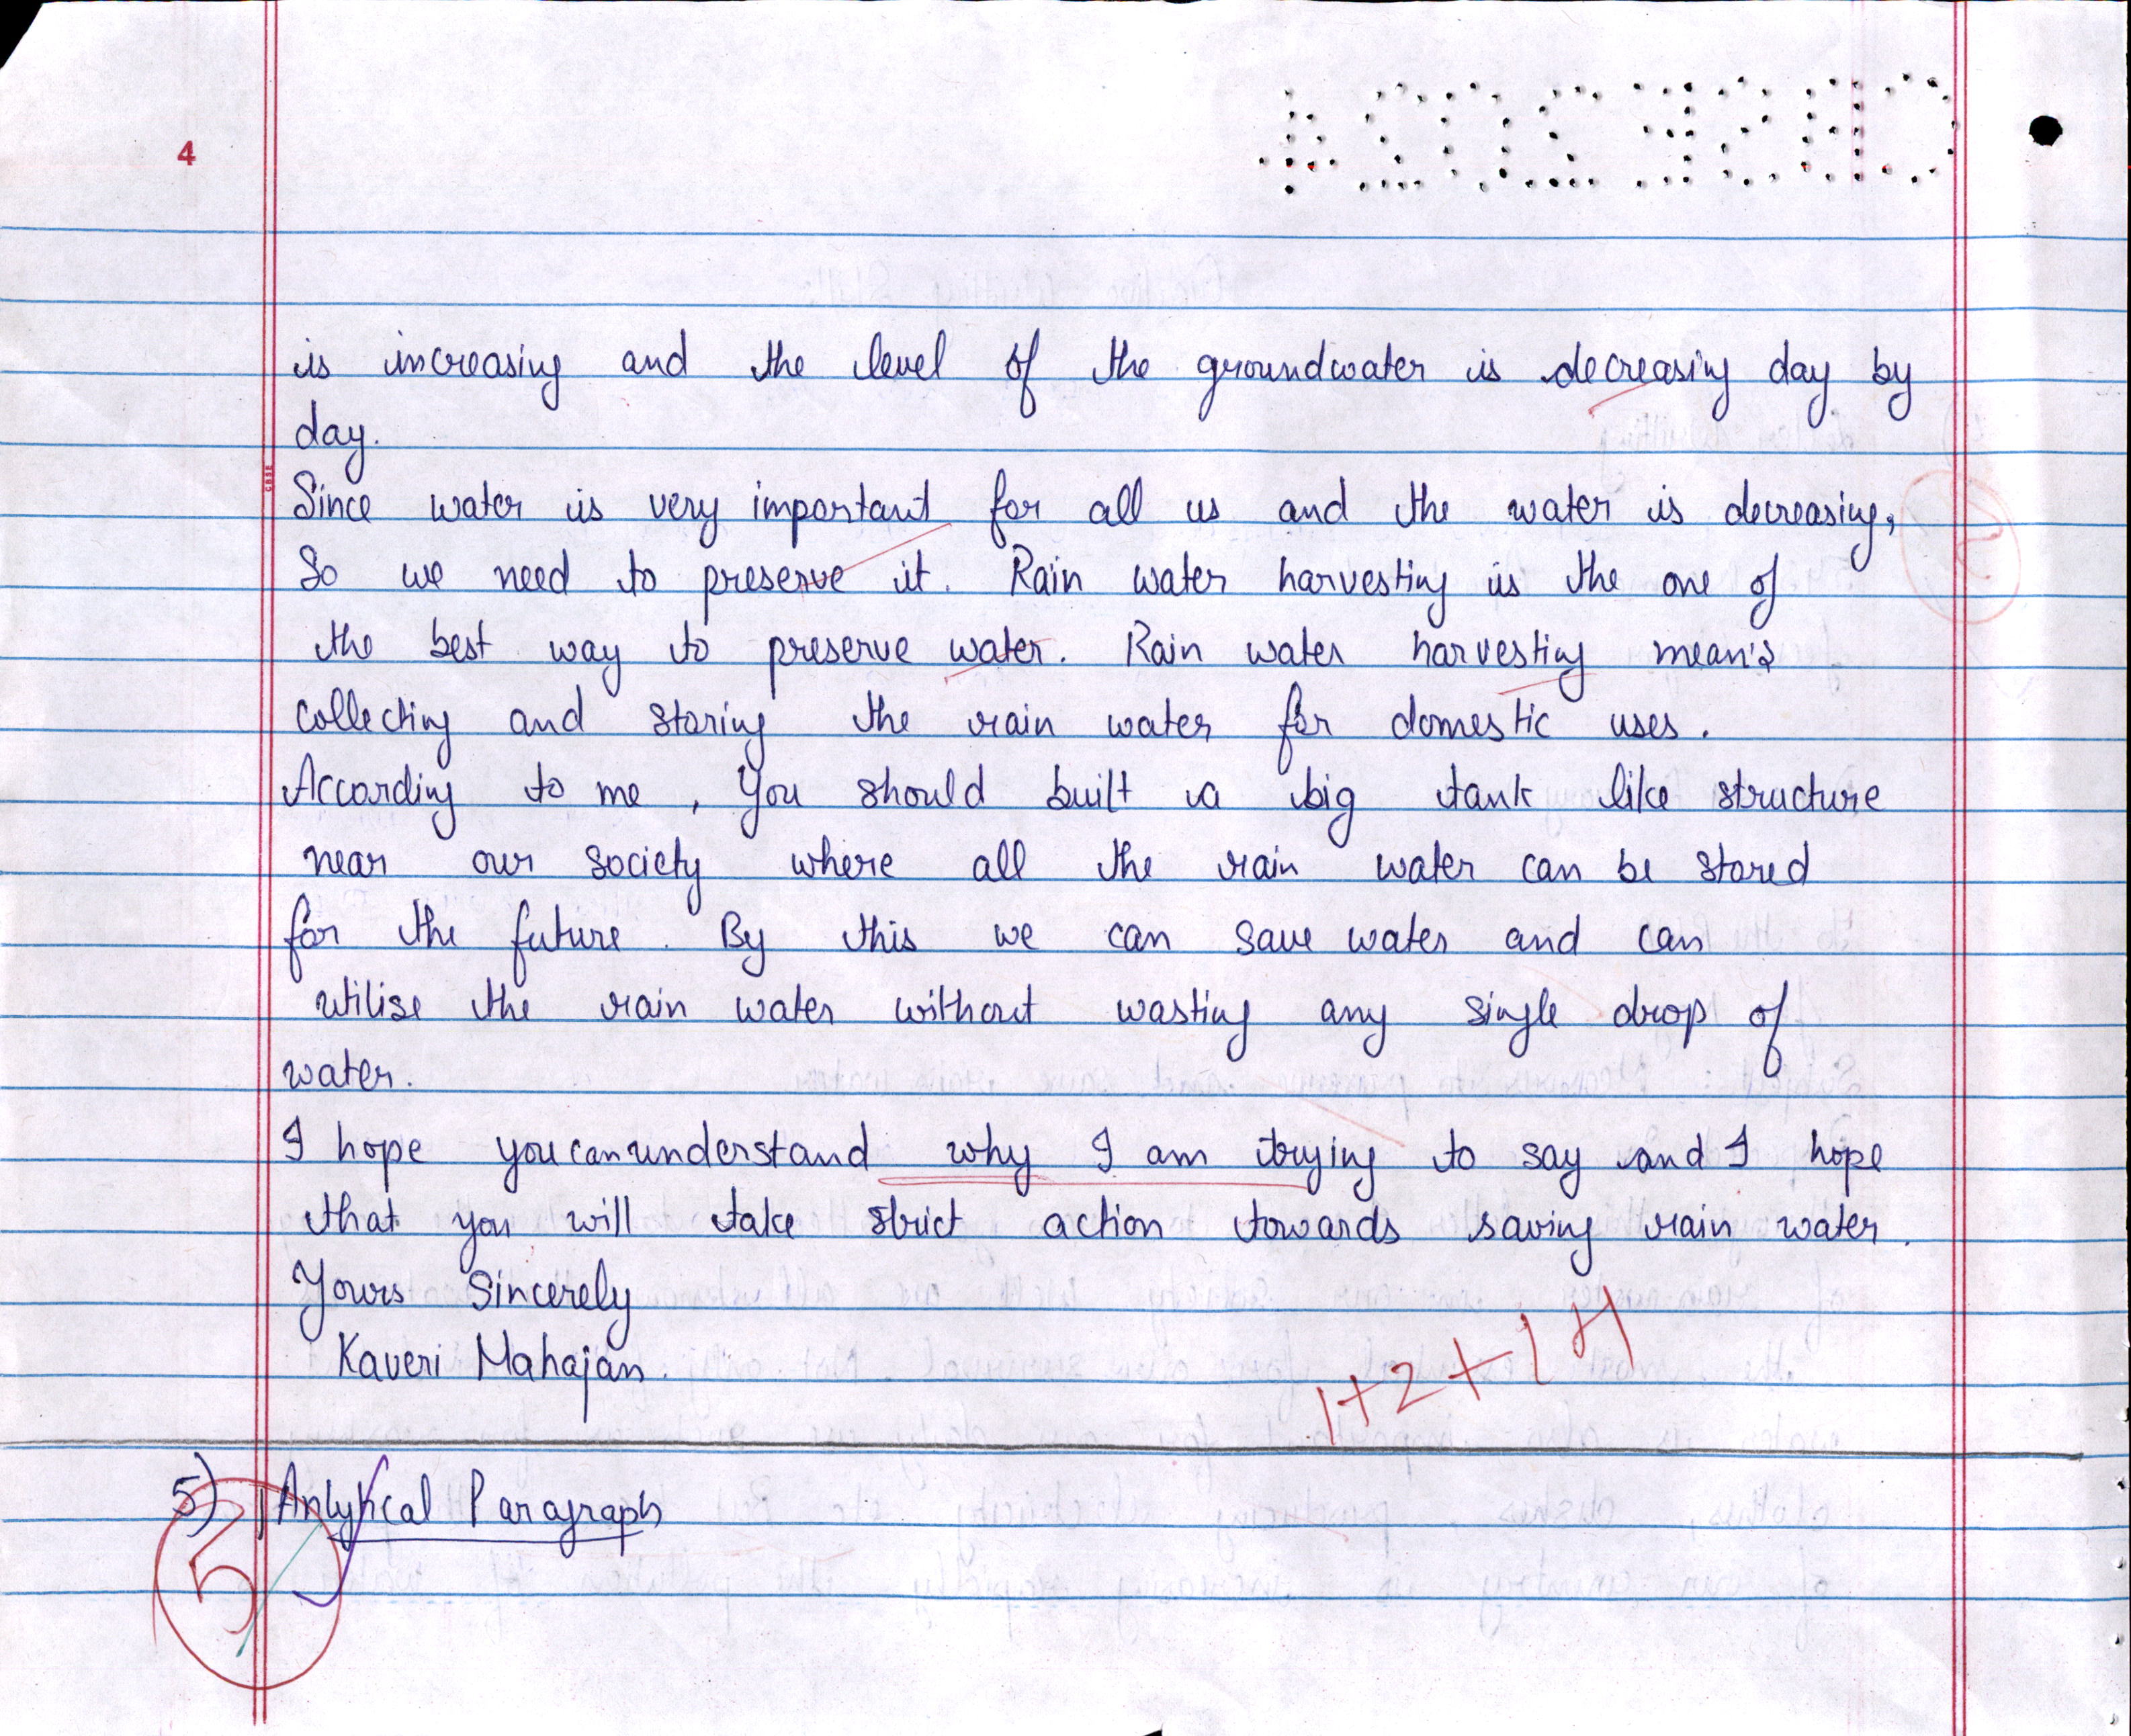 4
CBSE 2024
is increasing and the level of the groundwater is decreasing day by
day.
CBSE
Since water is very important for all us and the water is decreasing,
So we need to preserve it. Rain water harvesting is the one of
the best way to preserve water. Rain water harvesting mean's
collecting and storing the rain water for domestic uses.
According to me, You should built a big tank like structure
near our society where all the rain water can be stored
for the future. By this we can save water and can
utilise the rain water without wasting any single drop of
water.
I hope you can understand why I am trying to say and I hope
that you will take strict action towards saving rain water.
Yours Sincerely
Kaveri Mahajan.
1+2+1+1
5) Anlytical Paragraph
5